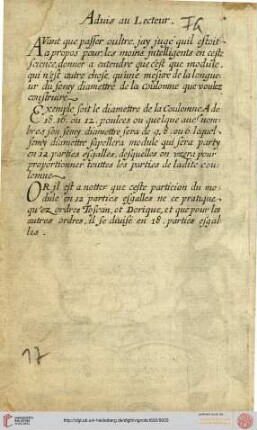 Aduis au Lecteur.
AVant que passer oultre, jay jugé quil estoit
a propos pour les moins intelligents en ceste
science, donner a entendre que cest que module,
qui n'est autre chose, qu'une mesure de la longue=
ur du semy diamettre de la Coulomne que voulez
construire
Exemple soit le diamettre de la Coulomne A de
18. 16. ou 12. poulces ou quelque aues nom=
bres son semy diamettre sera de 9. 8. ou 6. lequel
semy diamettre sapellera module qui sera party
en 12 parties esgalles, desquelles on usera pour
proportionner touttes les parties de ladite cou=
lomne
OR il est a notter que ceste particion du mo
dule en 12 parties esgalles ne ce pratique
qu'ez ordres Toscan, et Dorique, et que pour les
autres ordres, il se diuise en 18. parties esgal
les.
17
http://digi.ub.uni-heidelberg.de/diglit/vignola1632/0003